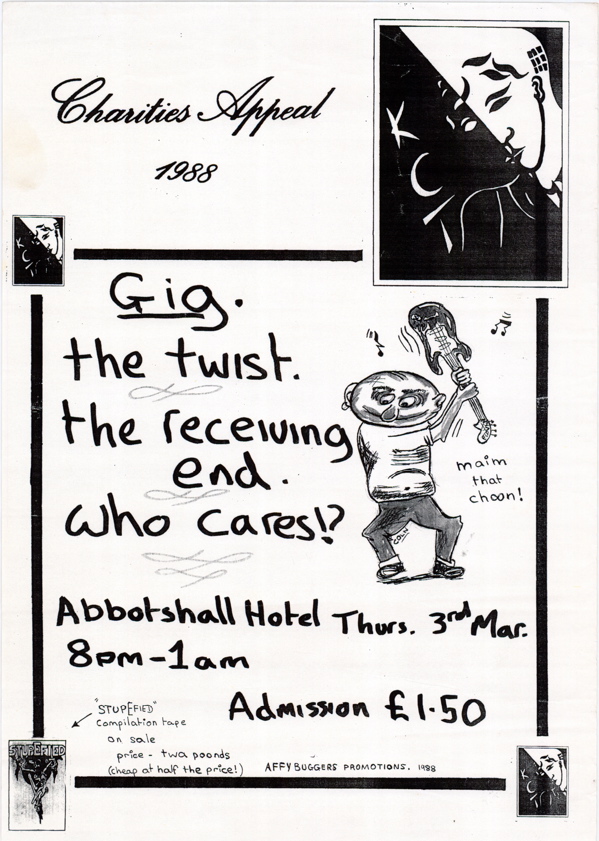 Charities Appeal
1988
Gig.
the twist.
the receiving
end.
Who cares!?
maim
that
choon!
Abbotshall Hotel Thurs. 3rd Mar.
8pm-1am
Admission £1.50
"STUPEFIED"
compilation tape
on sale
price - twa poonds
(cheap at half the price!)
AFFY BUGGERS PROMOTIONS. 1988
STUPEFIED